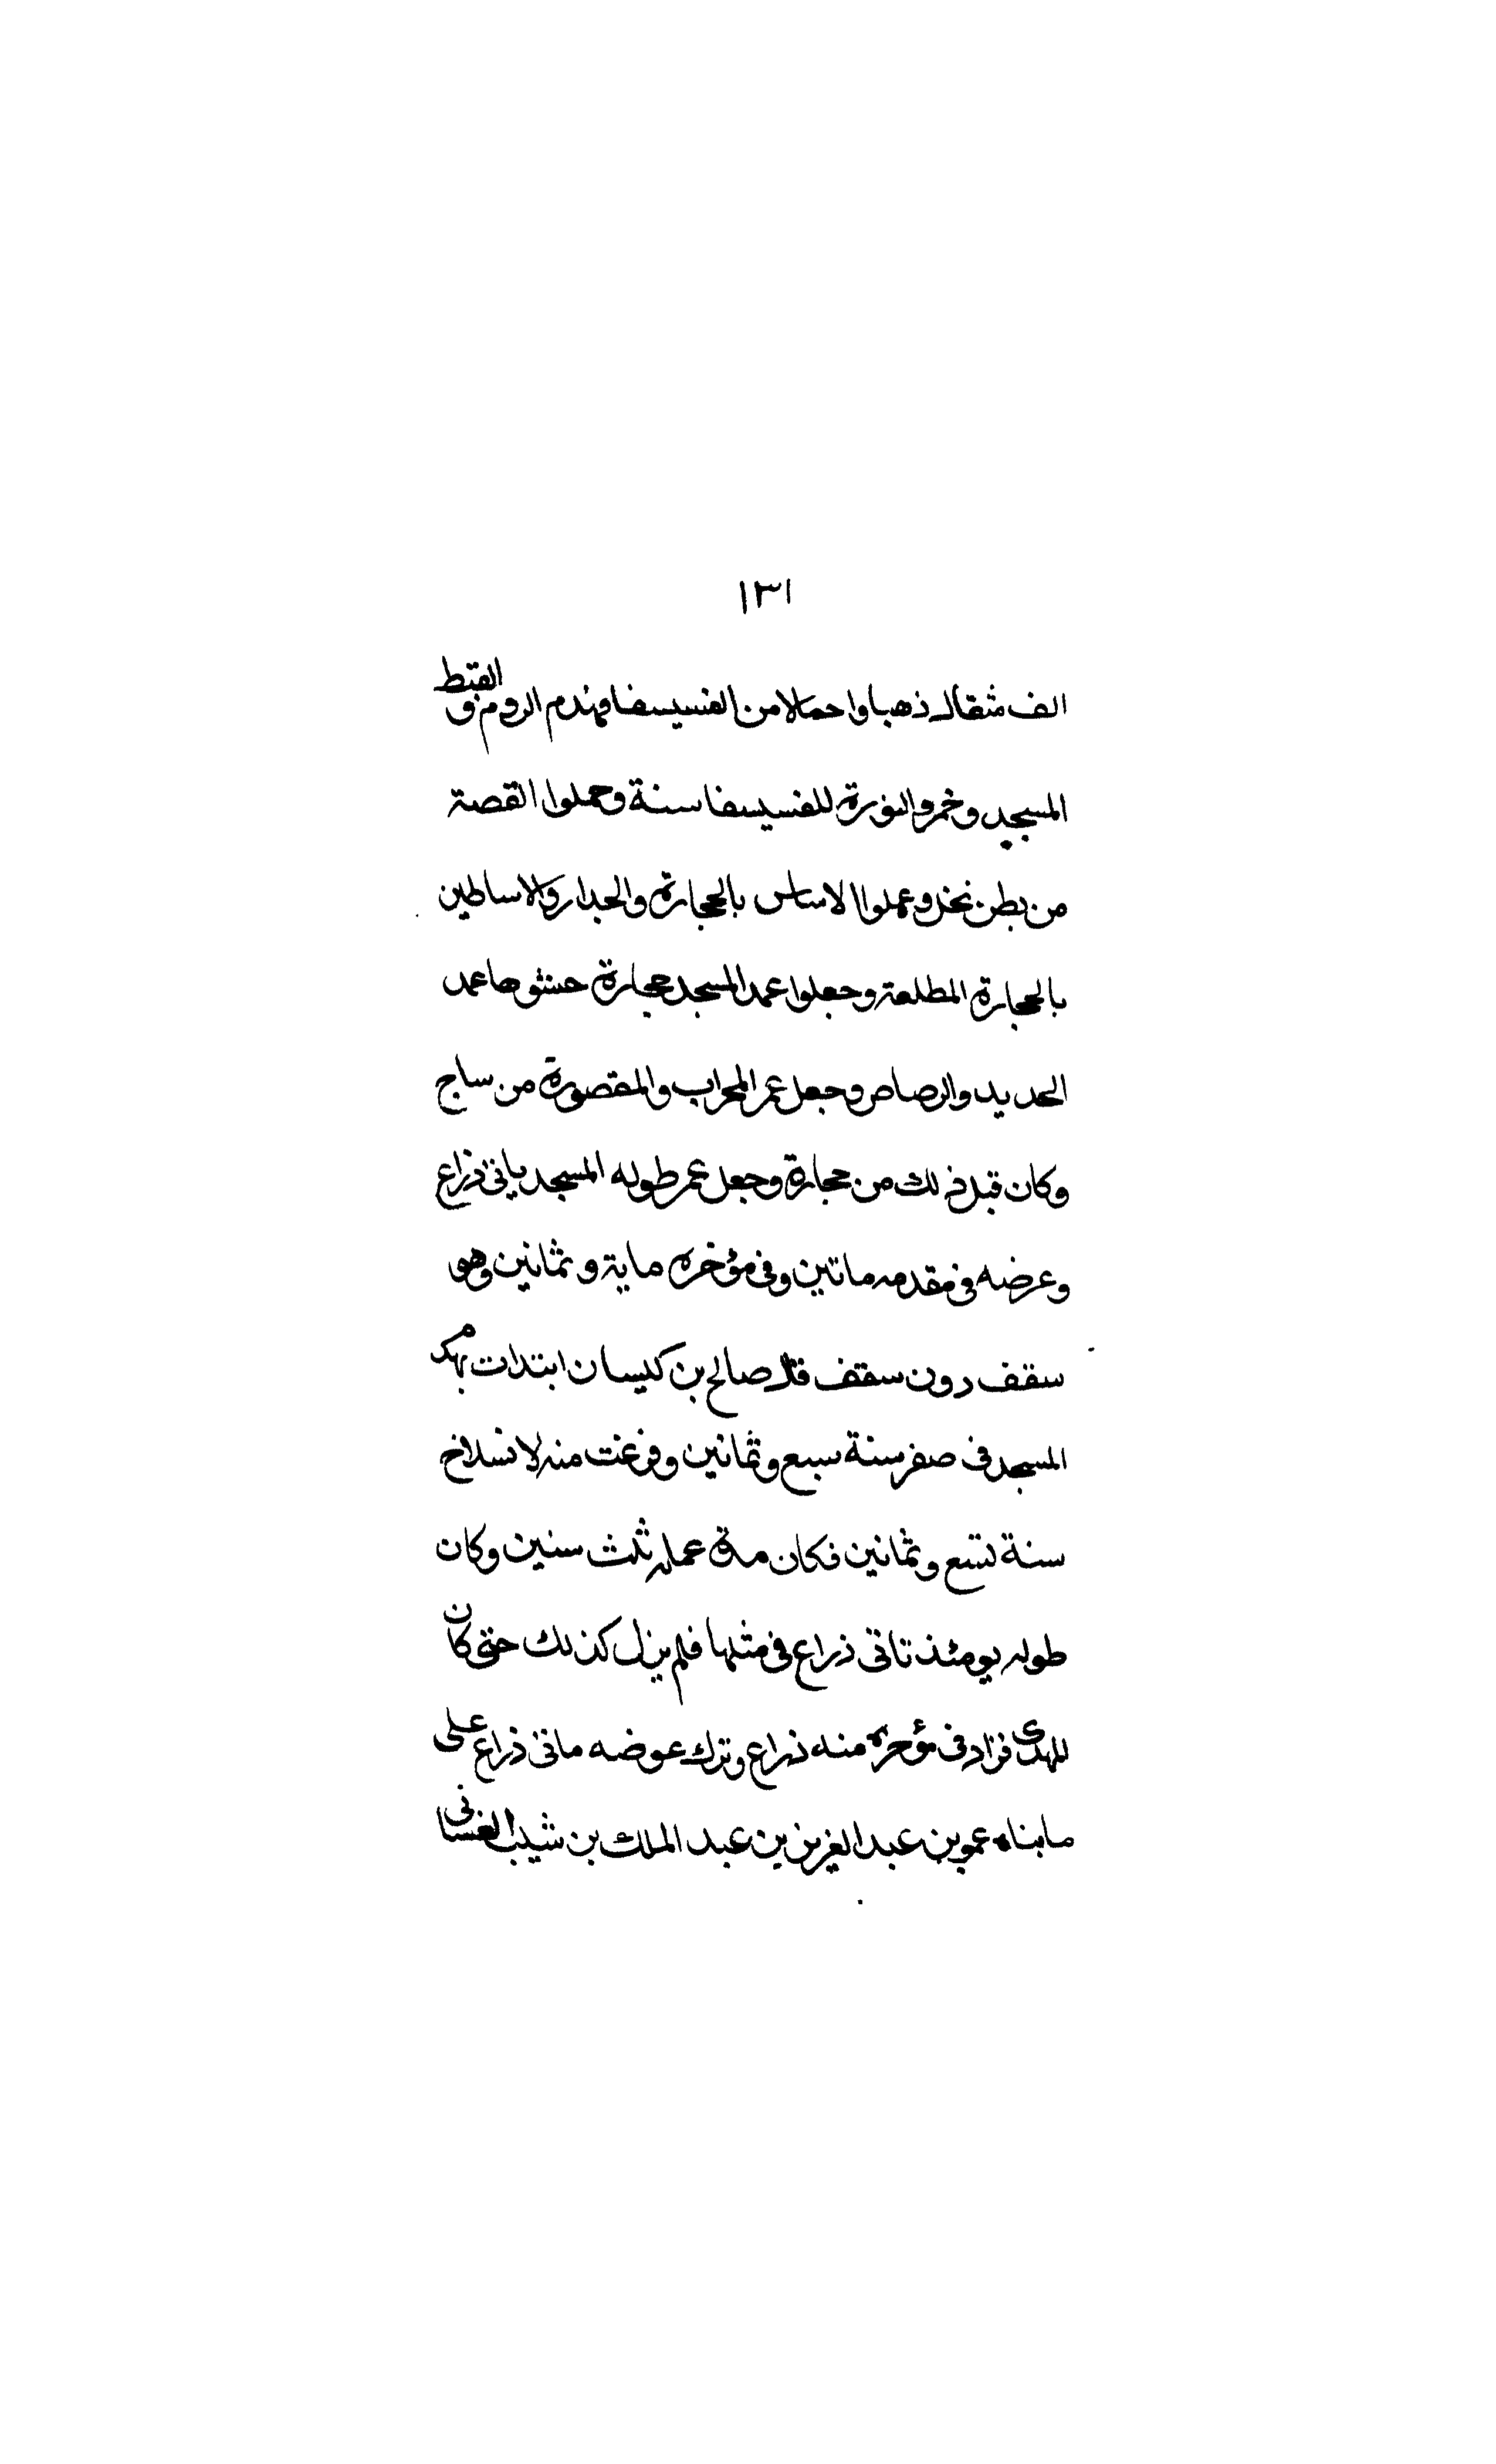 ١٣١
الف مثقال ذهبا واحمالا من الفسيسفا فهندم الروم و القبط
المسجد وخمروا النورة للفسيسفا سنة وحملوا القصة
من بطن نخل وعملوا الاساس بالحجارة والجدار والاساطين
بالحجارة المطلعة وجعلوا عمد المسجد حجارة حشوها عمد
الحديد والرصاص وجعل عمر المحراب والمقصورة من ساج
وكان قبل ذلك من حجارة وجعل عمر طوله المسجد ياتى ذراع
وعرضه فى مقدمه ماتين وفى مؤخره ماية وثمانين وهو
سقف دون سقف قال صالح بن كيسان ابتدات بهدم
المسجد فى صفر سنة سبع وثمانين وفرغت منه لانسلاخ
سنة تسع وثمانين فكان مدة عمله ثلث سنين وكان
طوله يومئذ تاتى ذراع فى مثلها فلم يزل كذلك حتى كان
المهدى فزاد فى مؤخره منه ذراع وترك عوضه ماتى ذراع على
مابناه عمر بن عبد العزيز بن عبد الملك بن شبيب الغسانى